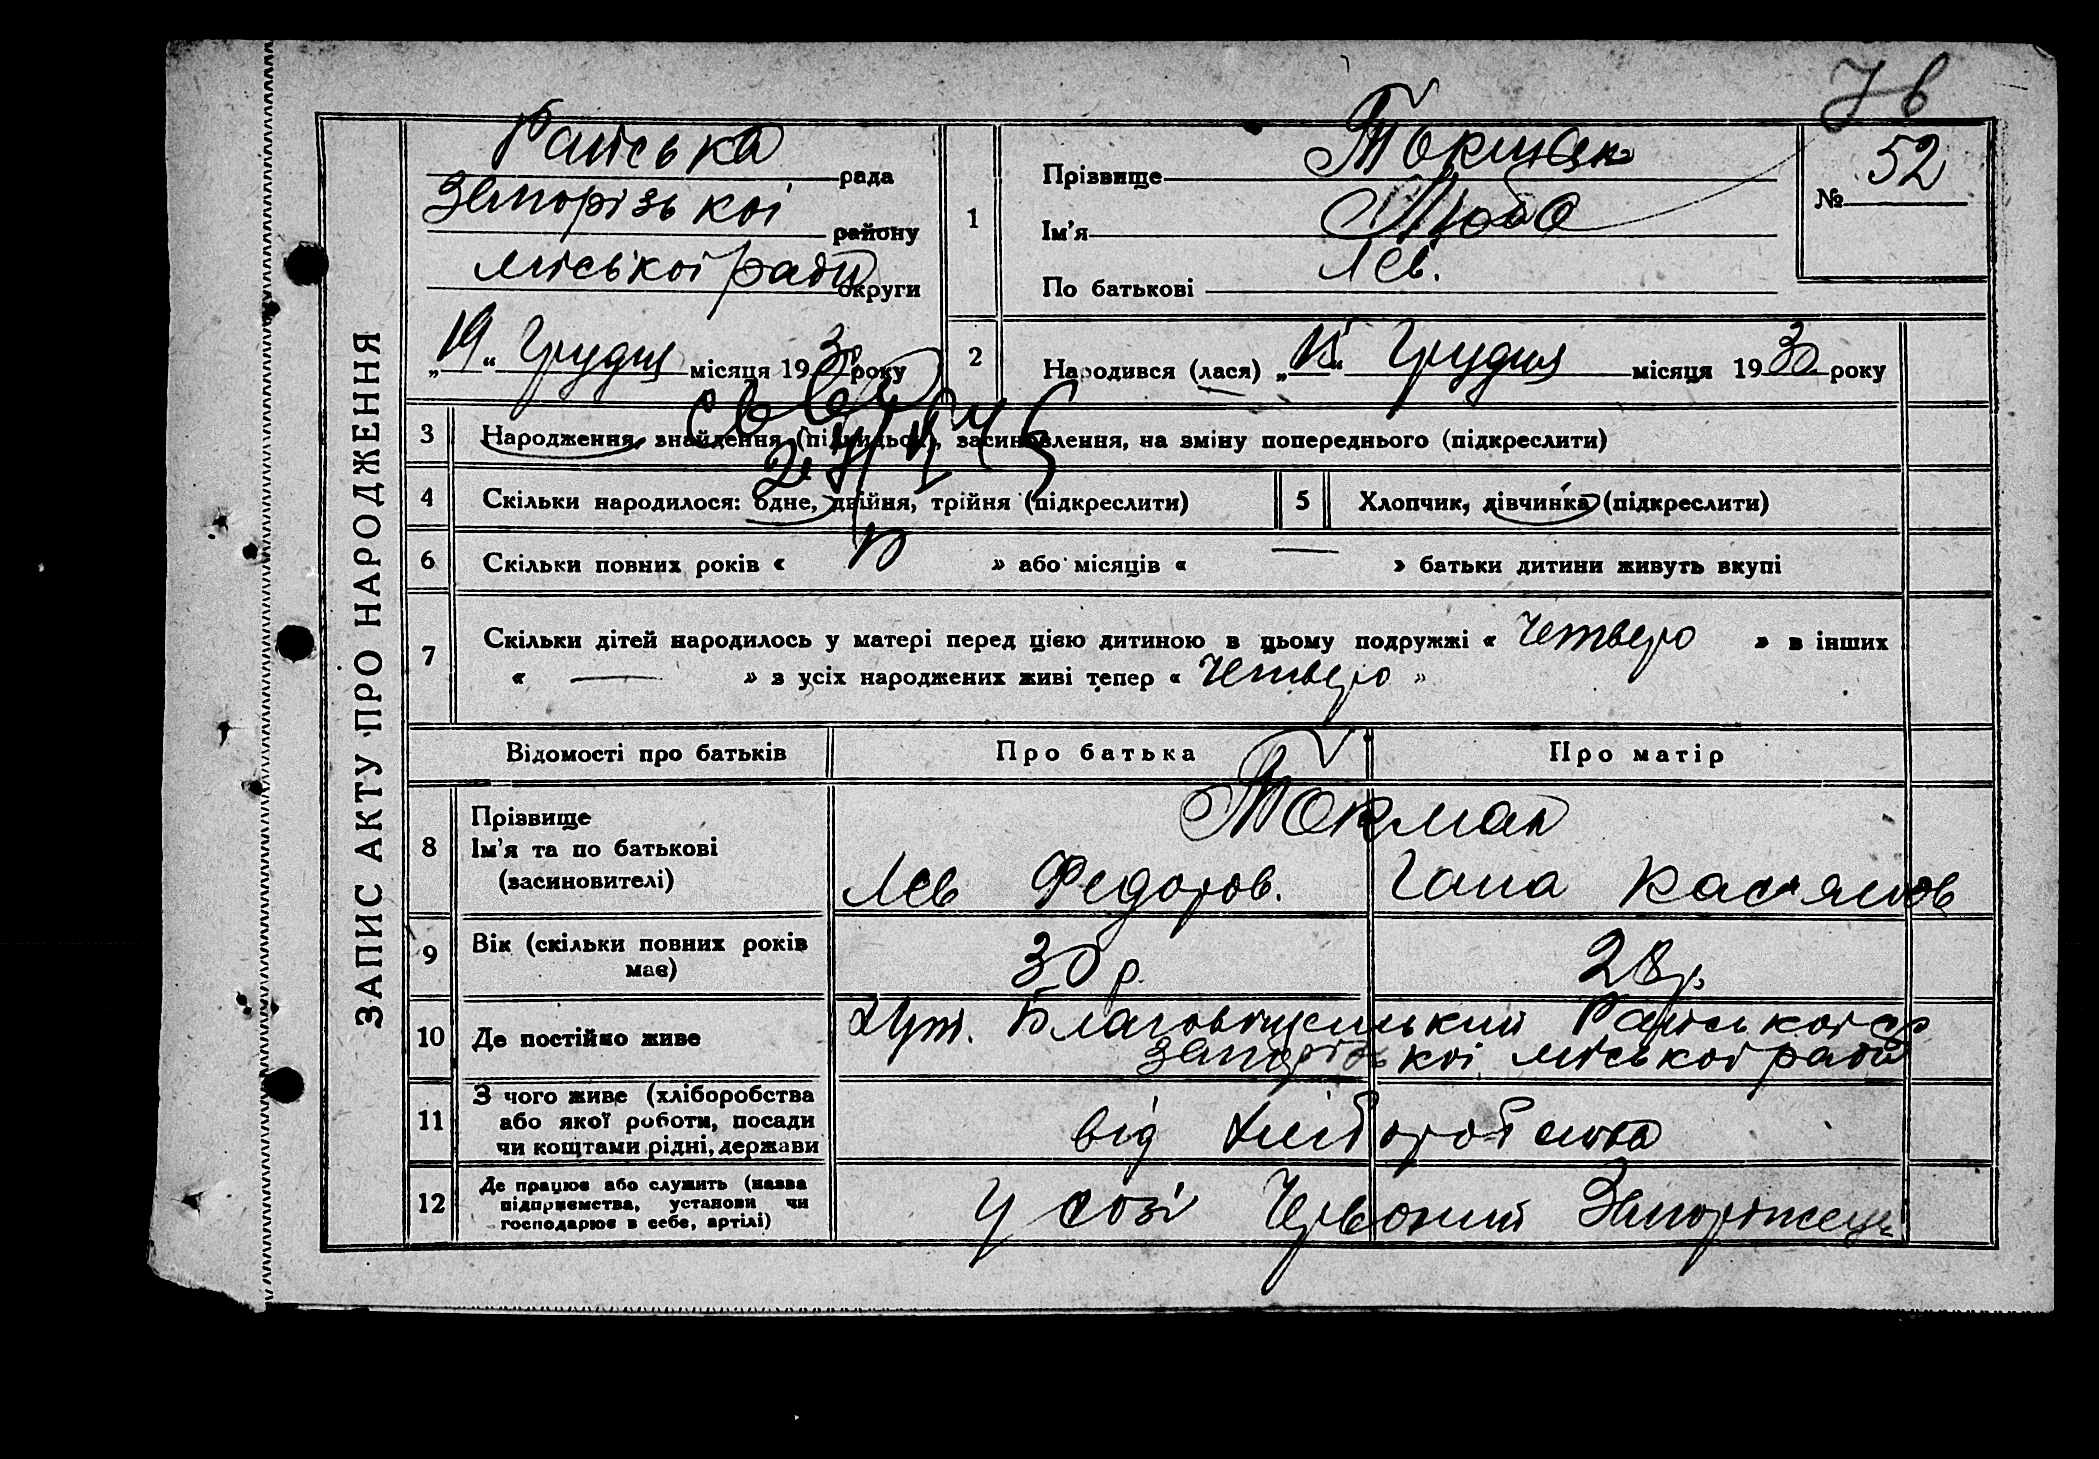 7 в
Райська рада
Запорізької району
міської ради округи
„19“ Грудня місяця 1930 року
1
Прізвище Токмак
Ім'я Люба
По батькові Лєв.
№ 52
2
Народився (лася) „15“ Грудня місяця 1930 року
ЗАПИС АКТУ ПРО НАРОДЖЕННЯ
3 Народження, знайдення (підкидьок), засиновлення, на зміну попереднього (підкреслити)
4 Скільки народилося: одне, двійня, трійня (підкреслити)
5 Хлопчик, дівчинка (підкреслити)
6 Скільки повних років « » або місяців « — » батьки дитини живуть вкупі
7 Скільки дітей народилось у матері перед цією дитиною в цьому подружжі « Четверо » в інших
« — » з усіх народжених живі тепер « Четверо »
Відомості про батьків Про батька Про матір
8 Прізвище
Ім'я та по батькові
(засиновителі)
Токмак
Лєв Федоров. Гана Кас'янов
9 Вік (скільки повних років
має)
30 р. 28 р.
10 Де постійно живе
Хут. Благовіщенський Райської ср
Запорізької міської ради
11 З чого живе (хліборобства
або якої роботи, посади
чи коштами рідні, держави
від хліборобства
12 Де працює або служить (назва
підприємства, установи чи
господарює в себе, артілі)
У созі Червоний Запоріжець